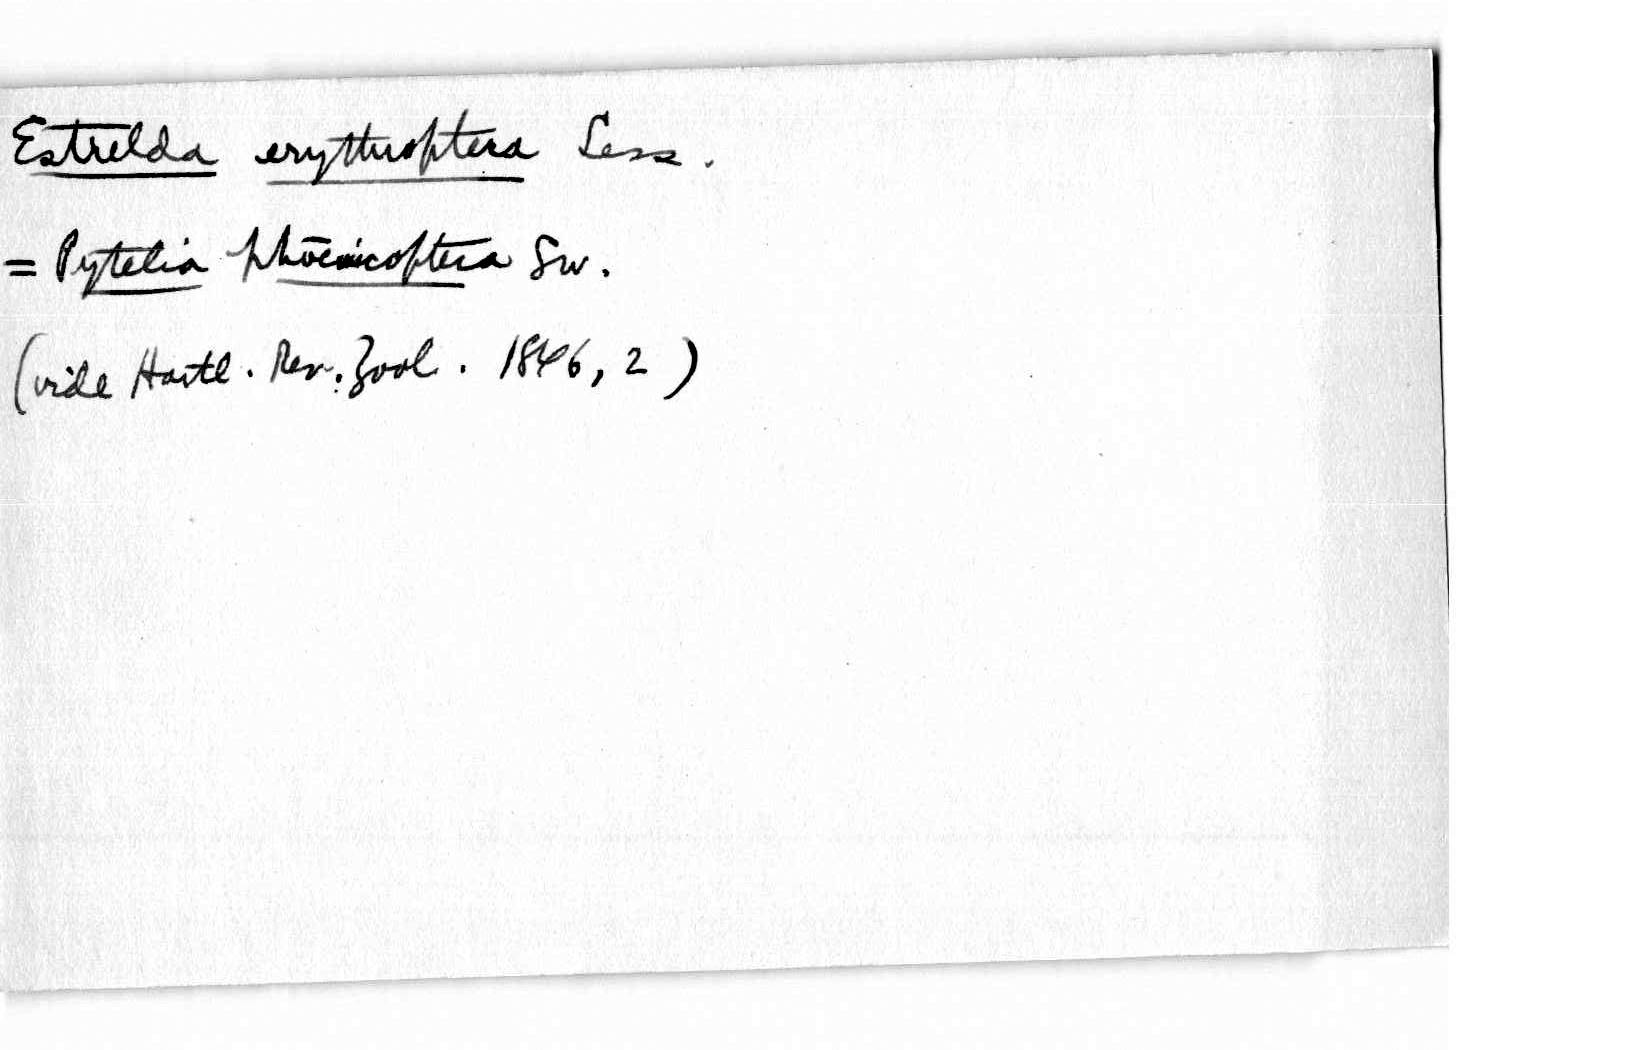 Estrelda erythroptera Less.
= Pytelia phoenicoptera Sw.
(vide Hartl. Rev. Zool. 1846, 2)